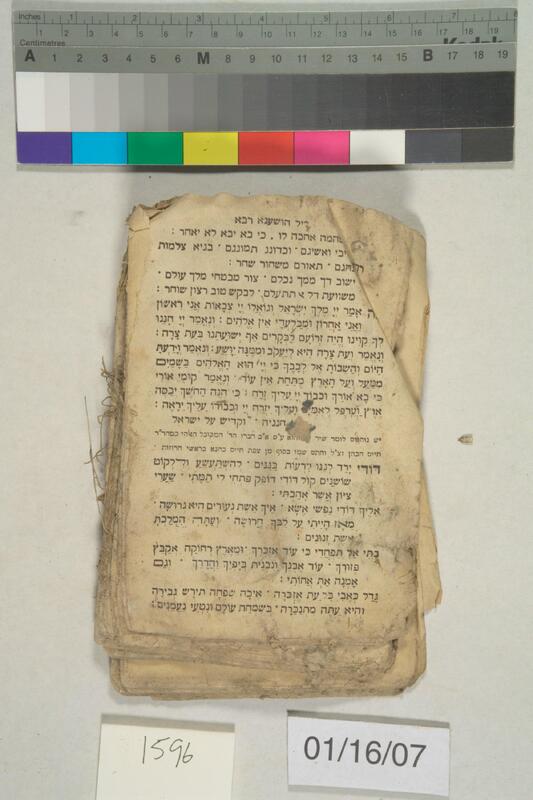 Inches 1 2 3 4 5 6 7
Centimetres
1 2 3 4 5 6 7 8 9 10 11 12 13 14 15 16 17 18 19
Kodak
A 1 2 3 4 5 6 M 8 9 10 11 12 13 14 15 B 17 18 19
ליל הושענא רבא
אחכה לו . כי בא יבא לא יאחר :
ואשיגם ׃ וכדונג תמוגגם ׃ בגיא צלמות
תאורם משחור שחר :
ישוב דך ממך נכלם ׃ צור מבטחי מלך עולם ׃
משועת דל א תתעלם . לבקש טוב רצון שוחר :
אמר יי מלך ישראל וגואלו יי צבאות אני ראשון
ואני אחרון ומבלעדי אין אלהים : ונאמר יי חננו
לך קוינו היה זרועם לבקרים אף ישועתנו בעת צרה :
ונאמר ועת צרה היא ליעקב וממנה יושע : ונאמר וידעת
היום והשבות אל לבבך כי יי הוא האלהים בשמים
ממעל ועל הארץ מתחת אין עוד : ונאמר קומי אורי
כי בא אורך וכבוד יי עליך זרח : כי הנה החשך יכסה
ארץ וערפל לאמים ועליך יזרח יי וכבודו עליך יראה :
וקדיש על ישראל
יש נוהגים לומר שיר
חיים הכהן זצ"ל וחתם שמו בסוף
דודי ירד לגנו לרעות בגנים ׃ להשתעשע וללקוט
שושנים קול דודי דופק פתחי לי תמתי ׃ שערי
ציון אשר אהבתי :
אליך דודי נפשי אשא ׃ איך אשת נעורים היא גרושה ׃
מאז הייתי על לבך חרושה ׃ ועתה המלכת
אשת זנונים :
בתי אל תפחדי כי עוד אזכרך ׃ ומארץ רחוקה אקבץ
פזורך ׃ עוד אבנך ונבנית ביפיך והדרך ׃ וגם
אמנה את אחותי :
גדל כאבי בכל עת אזכרה ׃ איכה שפחה תירש גבירה
והיא עתה מתנכרה ׃ בשמחת עולם ונטעי נעמנים :
1596
01/16/07